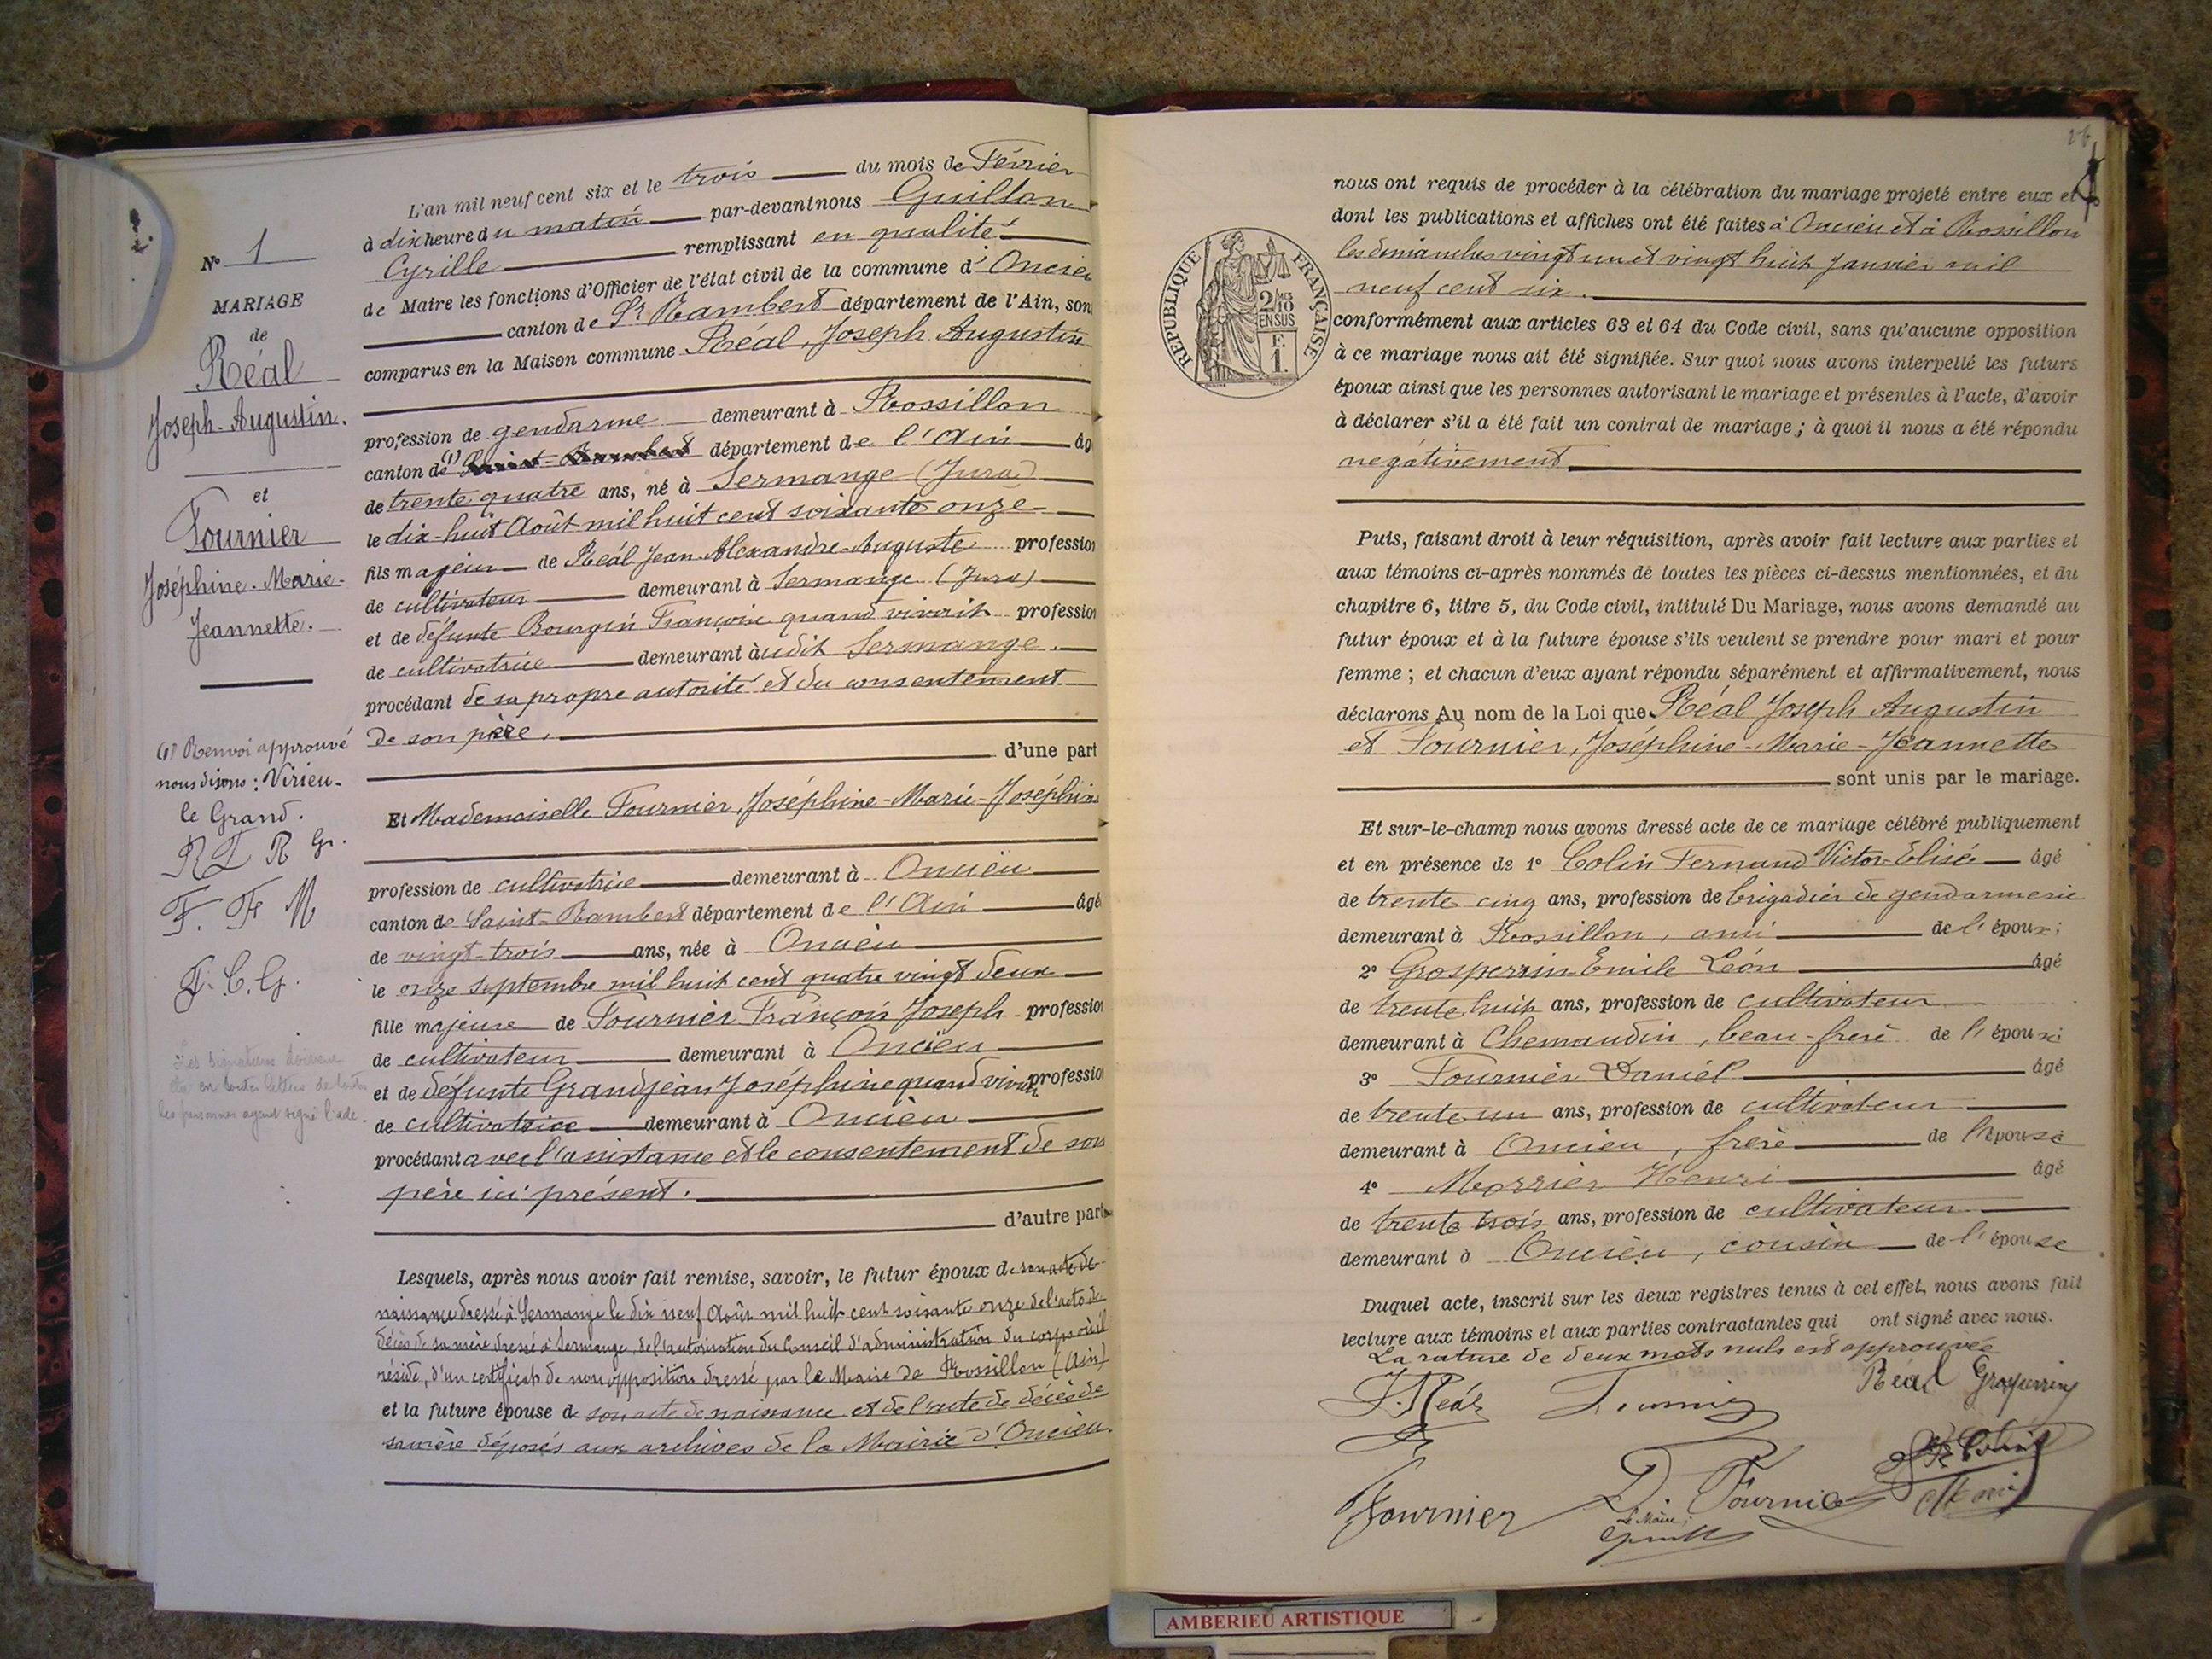 L'an mil neuf cent six et le trois du mois de Février
à dix heure du matin par-devant nous Guillon
Cyrille remplissant en qualité
de Maire les fonctions d'Officier de l'état civil de la commune d'Oncieu
canton de St Rambert département de l'Ain, son
comparus en la Maison commune Réal, Joseph Augustin
profession de gendarme demeurant à Rossillon
canton de (1) Saint-Rambert département de l'Ain âg
de trente quatre ans, né à Sermange (Jura)
le dix-huit Août mil huit cent soixante onze
fils majeur de Réal Jean-Alexandre-Auguste profession
de cultivateur demeurant à Sermange (Jura)
et de défunte Bourgin Françoise quand vivait profession
de cultivatrice demeurant àudit Sermange.
procédant de sa propre autorité et du consentement
de son père.
d'une part
Et Mademoiselle Fournier, Joséphine-Marie-Joséphine
profession de cultivatrice demeurant à Oncieu
canton de Saint-Rambert département de l'Ain âgé
de vingt-trois ans, née à Oncieu
le onze septembre mil huit cent quatre vingt deux
fille majeure de Fournier François Joseph profession
de cultivateur demeurant à Oncieu
et de défunte Grandjean Joséphine quand vivait profession
de cultivatrice demeurant à Oncieu
procédant avec l'assistance et le consentement de son
père ici présent.
d'autre part
Lesquels, après nous avoir fait remise, savoir, le futur époux de son acte de
naissance dressé à Sermange le dix neuf Août mil huit cent soixante onze de l'acte de
décès de sa mère dressé à Sermange, de l'autorisation du Conseil d'administration du corps où il
réside, d'un certificat de non opposition dressé par le Maire de Rossillon (Ain)
et la future épouse de son acte de naissance et de l'acte de décès de
sa mère déposés aux archives de la Mairie d'Oncieu.
N° 1
MARIAGE
de
Réal
Joseph-Augustin.
et
Fournier
Joséphine-Marie-
Jeannette.
(1) Renvoi approuvé
nous disons : Virieu-
le Grand.
F. F. M
F. C. G.
Les signatures doivent
être en toutes lettres de toutes
les personnes ayant signé l'acte.
nous ont requis de procéder à la célébration du mariage projeté entre eux et
dont les publications et affiches ont été faites à Oncieu et à Rossillon
les dimanches vingt un et vingt huit Janvier mil
neuf cent six.
conformément aux articles 63 et 64 du Code civil, sans qu'aucune opposition
à ce mariage nous ait été signifiée. Sur quoi nous avons interpellé les futurs
époux ainsi que les personnes autorisant le mariage et présentes à l'acte, d'avoir
à déclarer s'il a été fait un contrat de mariage ; à quoi il nous a été répondu
négativement
RÉPUBLIQUE FRANÇAISE
2/10 MES
EN SUS
F.
1.
Puis, faisant droit à leur réquisition, après avoir fait lecture aux parties et
aux témoins ci-après nommés de toutes les pièces ci-dessus mentionnées, et du
chapitre 6, titre 5, du Code civil, intitulé Du Mariage, nous avons demandé au
futur époux et à la future épouse s'ils veulent se prendre pour mari et pour
femme ; et chacun d'eux ayant répondu séparément et affirmativement, nous
déclarons Au nom de la Loi que Réal Joseph Augustin
et Fournier, Joséphine-Marie-Jeannette
sont unis par le mariage.
Et sur-le-champ nous avons dressé acte de ce mariage célébré publiquement
et en présence de 1° Colin Fernand Victor-Elisée âgé
de trente cinq ans, profession de brigadier de gendarmerie
demeurant à Rossillon, ami de l'époux;
2° Grosperrin Emile Léon âgé
de trente huit ans, profession de cultivateur
demeurant à Chemaudin, beau-frère de l'époux;
3° Fournier Daniel âgé
de trente un ans, profession de cultivateur
demeurant à Oncieu, frère de l'épouse
4° Morrier Henri âgé
de trente trois ans, profession de cultivateur
demeurant à Oncieu, cousin de l'épouse
Duquel acte, inscrit sur les deux registres tenus à cet effet, nous avons fait
lecture aux témoins et aux parties contractantes qui ont signé avec nous.
La rature de deux mots nuls est approuvée
J. Réal Fournier Réal Grosperrin
Fournier D. Fournier
Le Maire,
AMBERIEU ARTISTIQUE